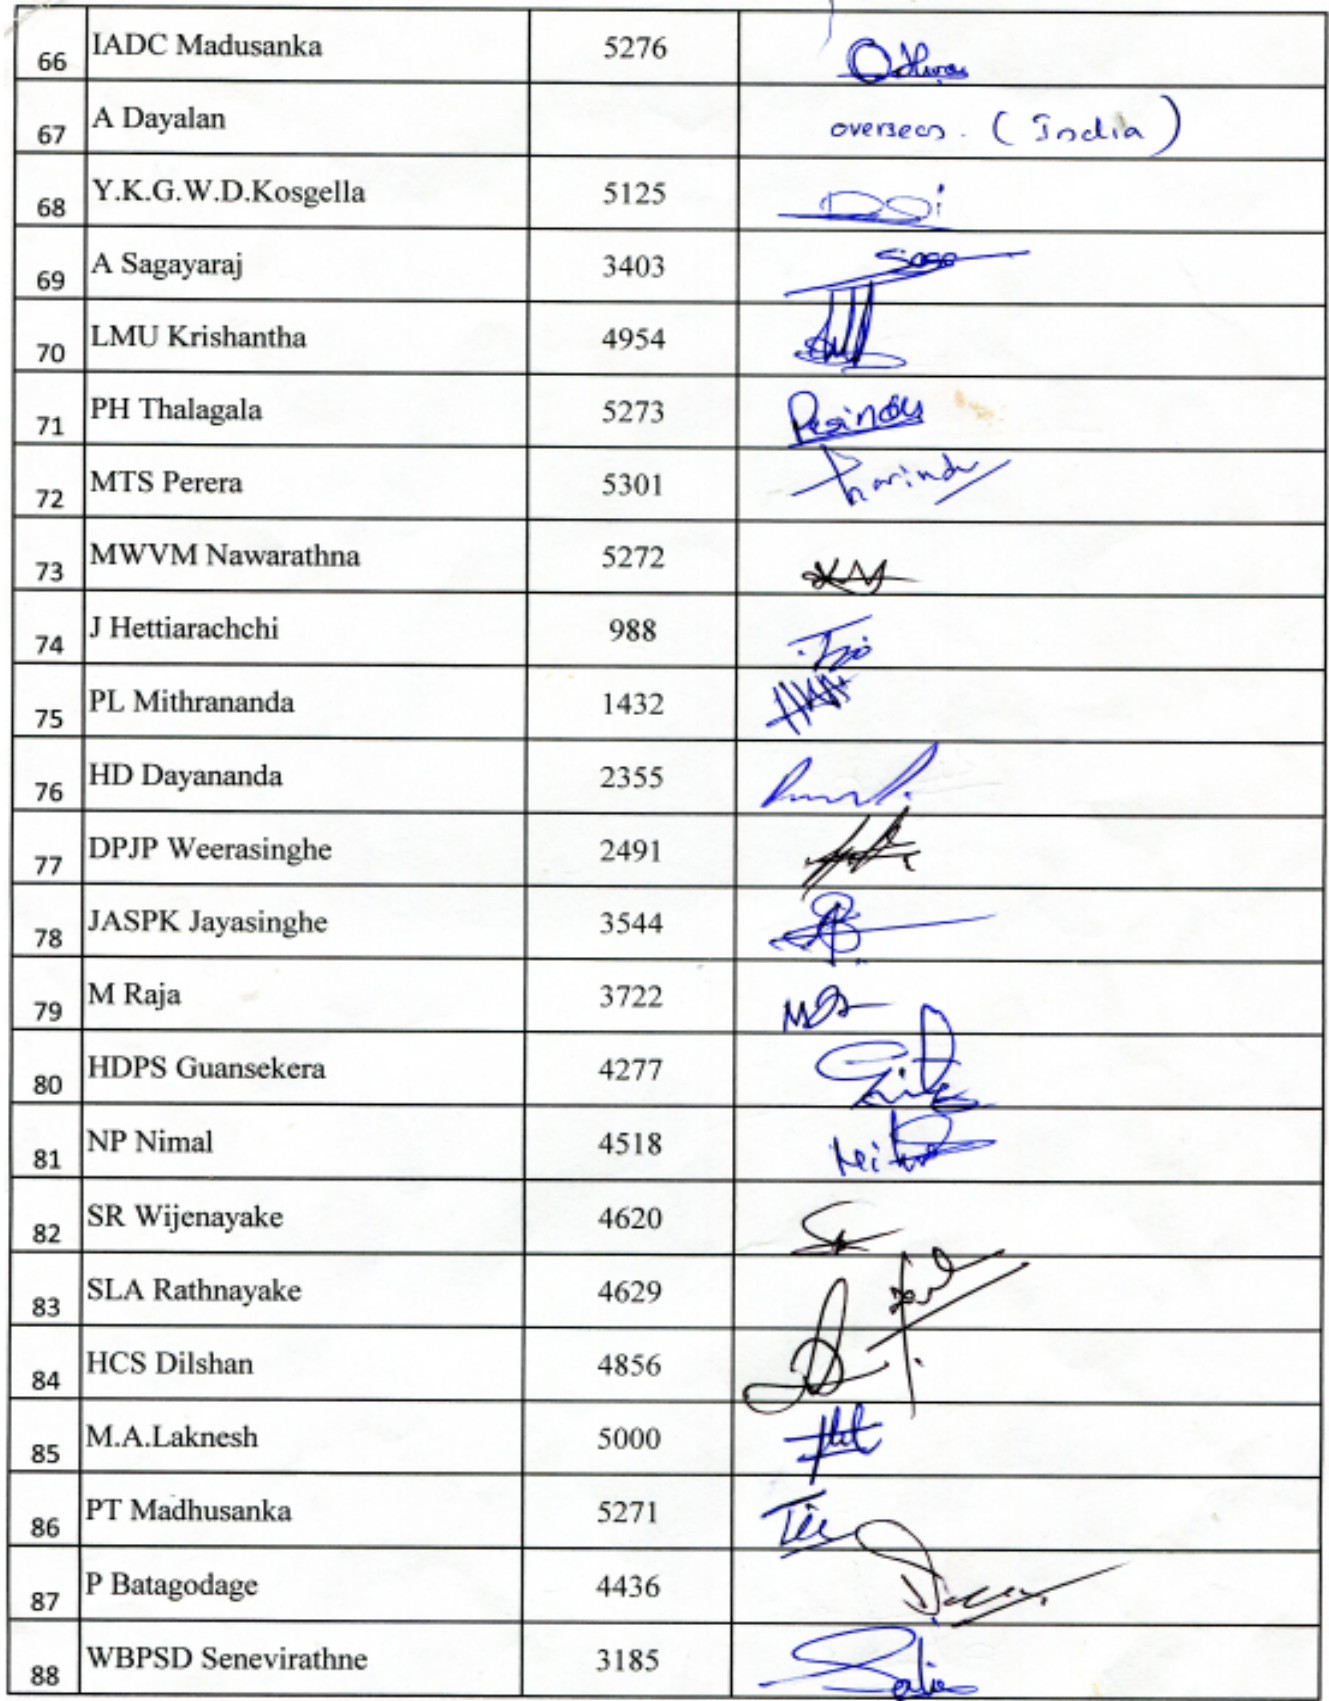 66 IADC Madusanka 5276
67 A Dayalan overseas. (India)
68 Y.K.G.W.D.Kosgella 5125
69 A Sagayaraj 3403
70 LMU Krishantha 4954
71 PH Thalagala 5273
72 MTS Perera 5301
73 MWVM Nawarathna 5272
74 J Hettiarachchi 988
75 PL Mithrananda 1432
76 HD Dayananda 2355
77 DPJP Weerasinghe 2491
78 JASPK Jayasinghe 3544
79 M Raja 3722
80 HDPS Guansekera 4277
81 NP Nimal 4518
82 SR Wijenayake 4620
83 SLA Rathnayake 4629
84 HCS Dilshan 4856
85 M.A.Laknesh 5000
86 PT Madhusanka 5271
87 P Batagodage 4436
88 WBPSD Senevirathne 3185